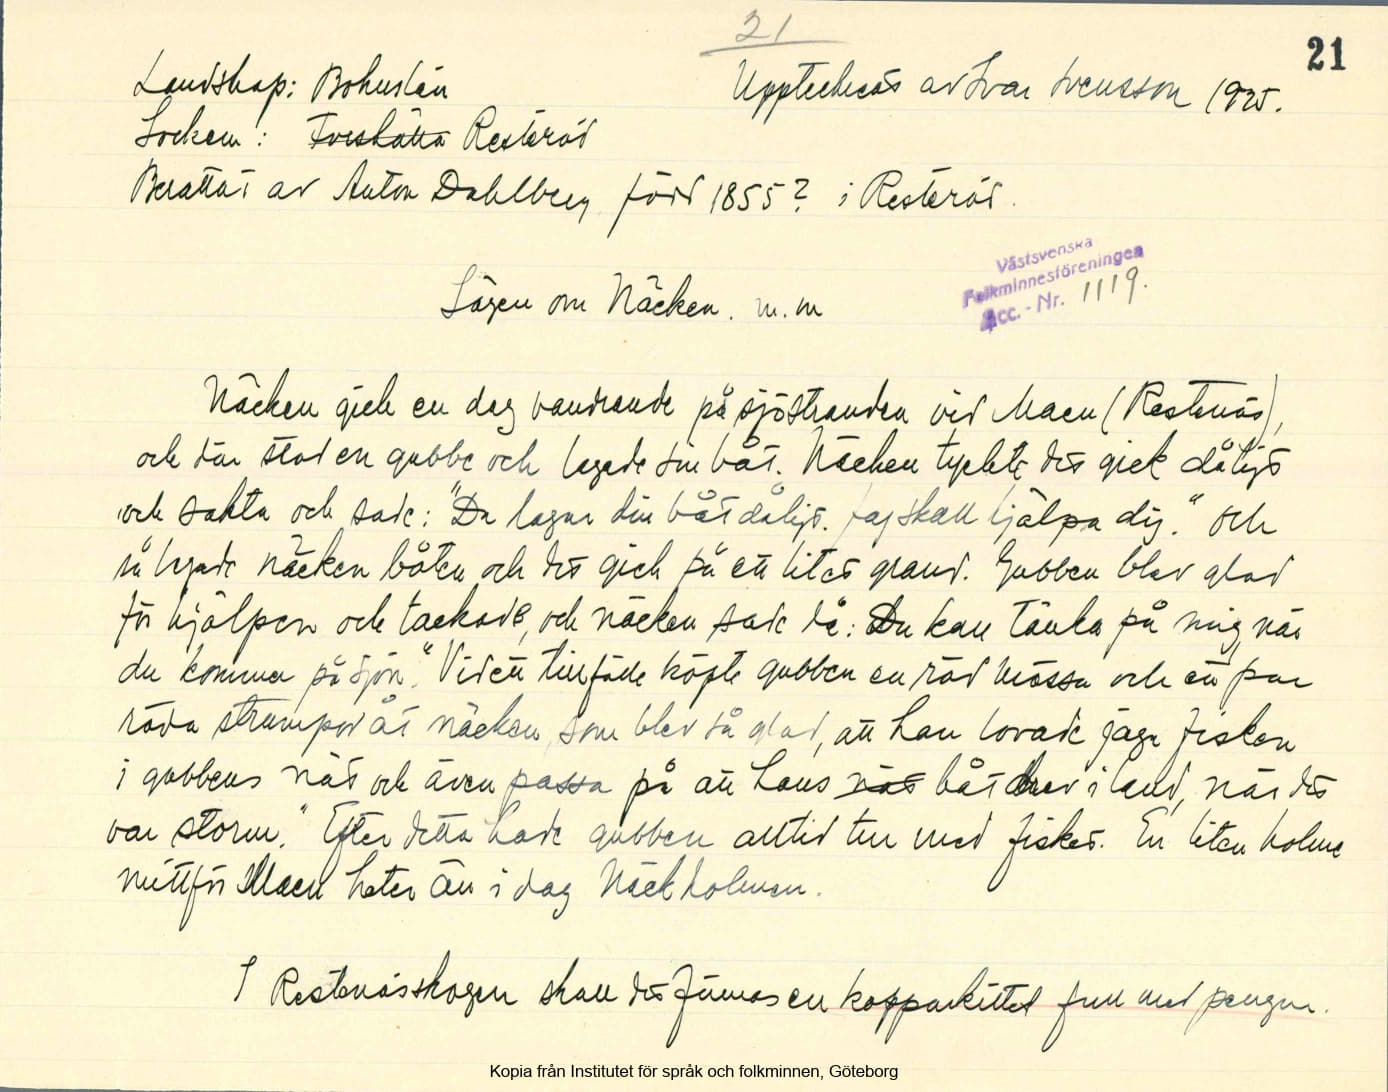 21
21
Landskap: Bohuslän
Upptecknat av Ivar Svensson 1925.
Socken: Resteröd
Berättat av Anton Dahlberg född 1855? i Resteröd.
Västsvenska
Folkminnesföreningen
Acc.-Nr. 1119.
Sägen om Näcken. m.m
Näcken gick en dag vandrande på sjöstranden vid Maen (Restenäs),
och där stod en gubbe och lagade sin båt. Näcken tyckte det gick dåligt
och sakta och sade: "Du lagar din båt dåligt. Jag skall hjälpa dig." Och
så lagade näcken båten och det gick på ett litet grand. Gubben blev glad
för hjälpen och tackade, och näcken sade då: Du kan tänka på mig, när
du kommer på sjön." Vid ett tillfälle köpte gubben en röd mössa och ett par
röda strumpor åt näcken, som blev så glad, att han lovade jaga fisken
i gubbens nät och även passa på att hans nät båt drev i land, när det
var storm." Efter detta hade gubben alltid tur med fisket. En liten holme
mittför Maen heter än i dag Näckholmen.
I Restenässkogen skall det finnas en kopparkittel full med pengar.
Kopia från Institutet för språk och folkminnen, Göteborg